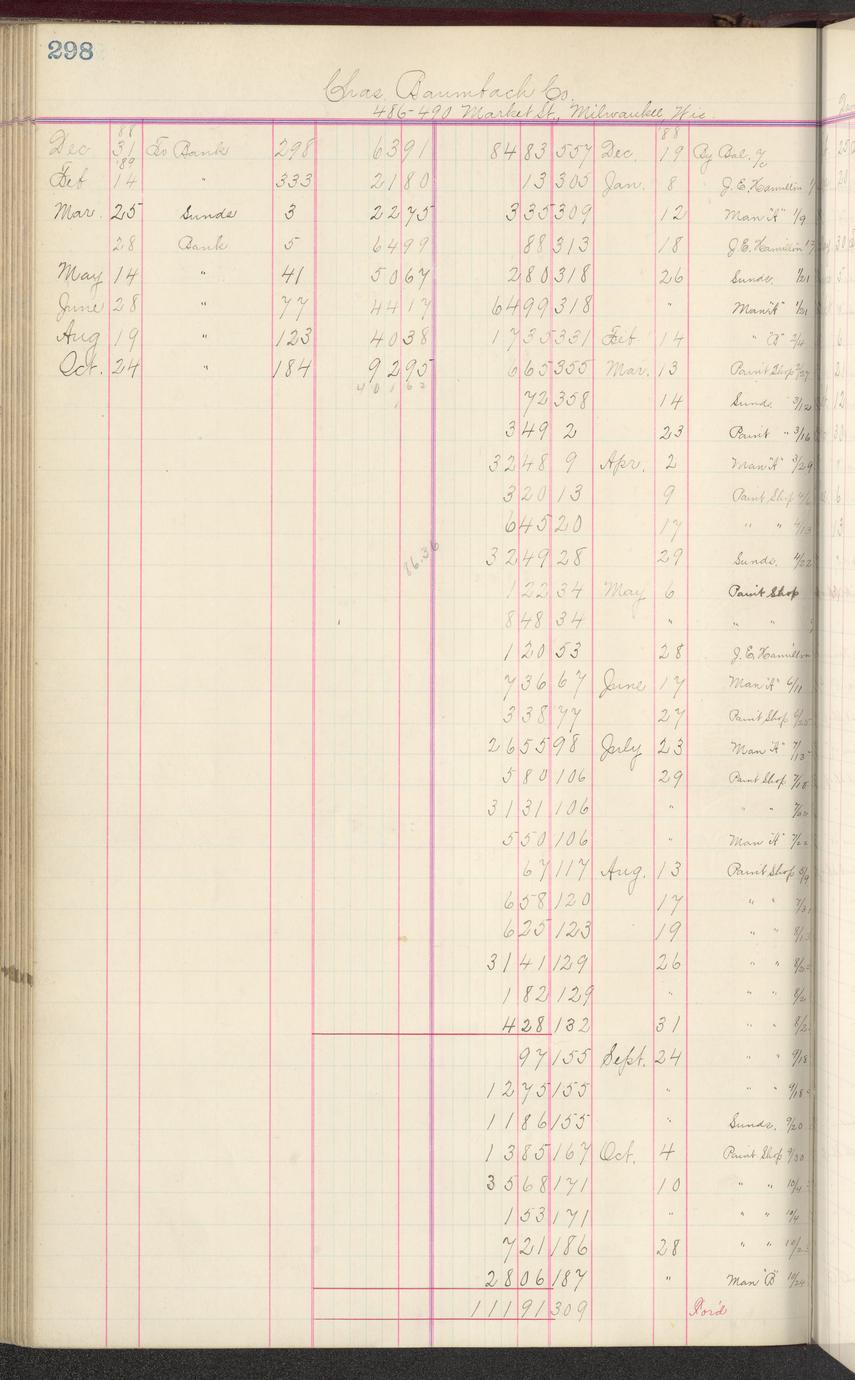 298
Chas. Baumbach Co.
486-490 Market St., Milwaukee, Wis.
88 '88
Dec 31 To Bank 298 6391 8483 557 Dec. 19 By Bal. %
'89
Feb 14 " 333 2180 13 305 Jan. 8 J. E. Hamilton
Mar. 25 Sunds 3 2275 335 309 12 Man "A" 1/9
28 Bank 5 6499 88 313 18 J. E. Hamilton
May 14 " 41 5067 280 318 26 Sunds. 1/21
June 28 " 77 4417 6499 318 " Man "A" 1/21
Aug 19 " 123 4038 1735 331 Feb 14 " "B" 2/4
Oct. 24 " 184 9295 665 355 Mar. 13 Paint Shop 2/27
40162
72 358 14 Sunds. 3/12
349 2 23 Paint " 3/16
3248 9 Apr. 2 Man "A" 3/29
320 13 9 Paint Shop 4/6
645 20 17 " " 4/13
3249 28 29 Sunds. 4/22
16.36
122 34 May 6 Paint Shop
848 34 " " "
120 53 28 J. E. Hamilton
736 67 June 17 Man "A" 6/11
338 77 27 Paint Shop 6/25
2655 98 July 23 Man "A" 7/13
580 106 29 Paint Shop 7/18
3131 106 " " "
550 106 " Man "A" 7/22
67 117 Aug. 13 Paint Shop 8/9
658 120 17 " "
625 123 19 " "
3141 129 26 " "
182 129 " " "
428 132 31 " "
97 155 Sept. 24 " " 9/18
1275 155 " " " 9/18
1186 155 " Sunds. 9/20
1385 167 Oct. 4 Paint Shop 9/30
3568 171 10 " " 10/4
153 171 " " " 10/4
721 186 28 " "
2806 187 " Man "B" 10/24
11191 309 For'd